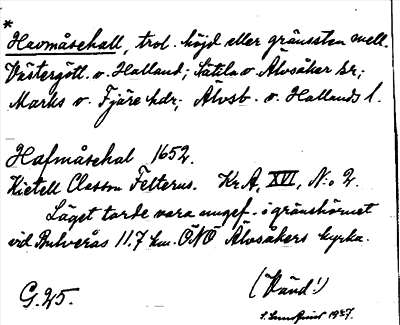 *
Havmåsehall, trol. höjd eller gränssten mell.
Västergötl. o. Halland; Sätila o. Älvsåker sr;
Marks o. Fjäre hdr; Älvsb. o. Hallands l.
Hafmåsehal 1652.
Kietell Classon Felterus. Kr.A, XVI, N:o 2.
Läget torde vara ungef. i gränshörnet
vid Bulverås 11.7 km. ÖNÖ Älvsåkers kyrka.
G. 25.
(Vänd!)
1927.